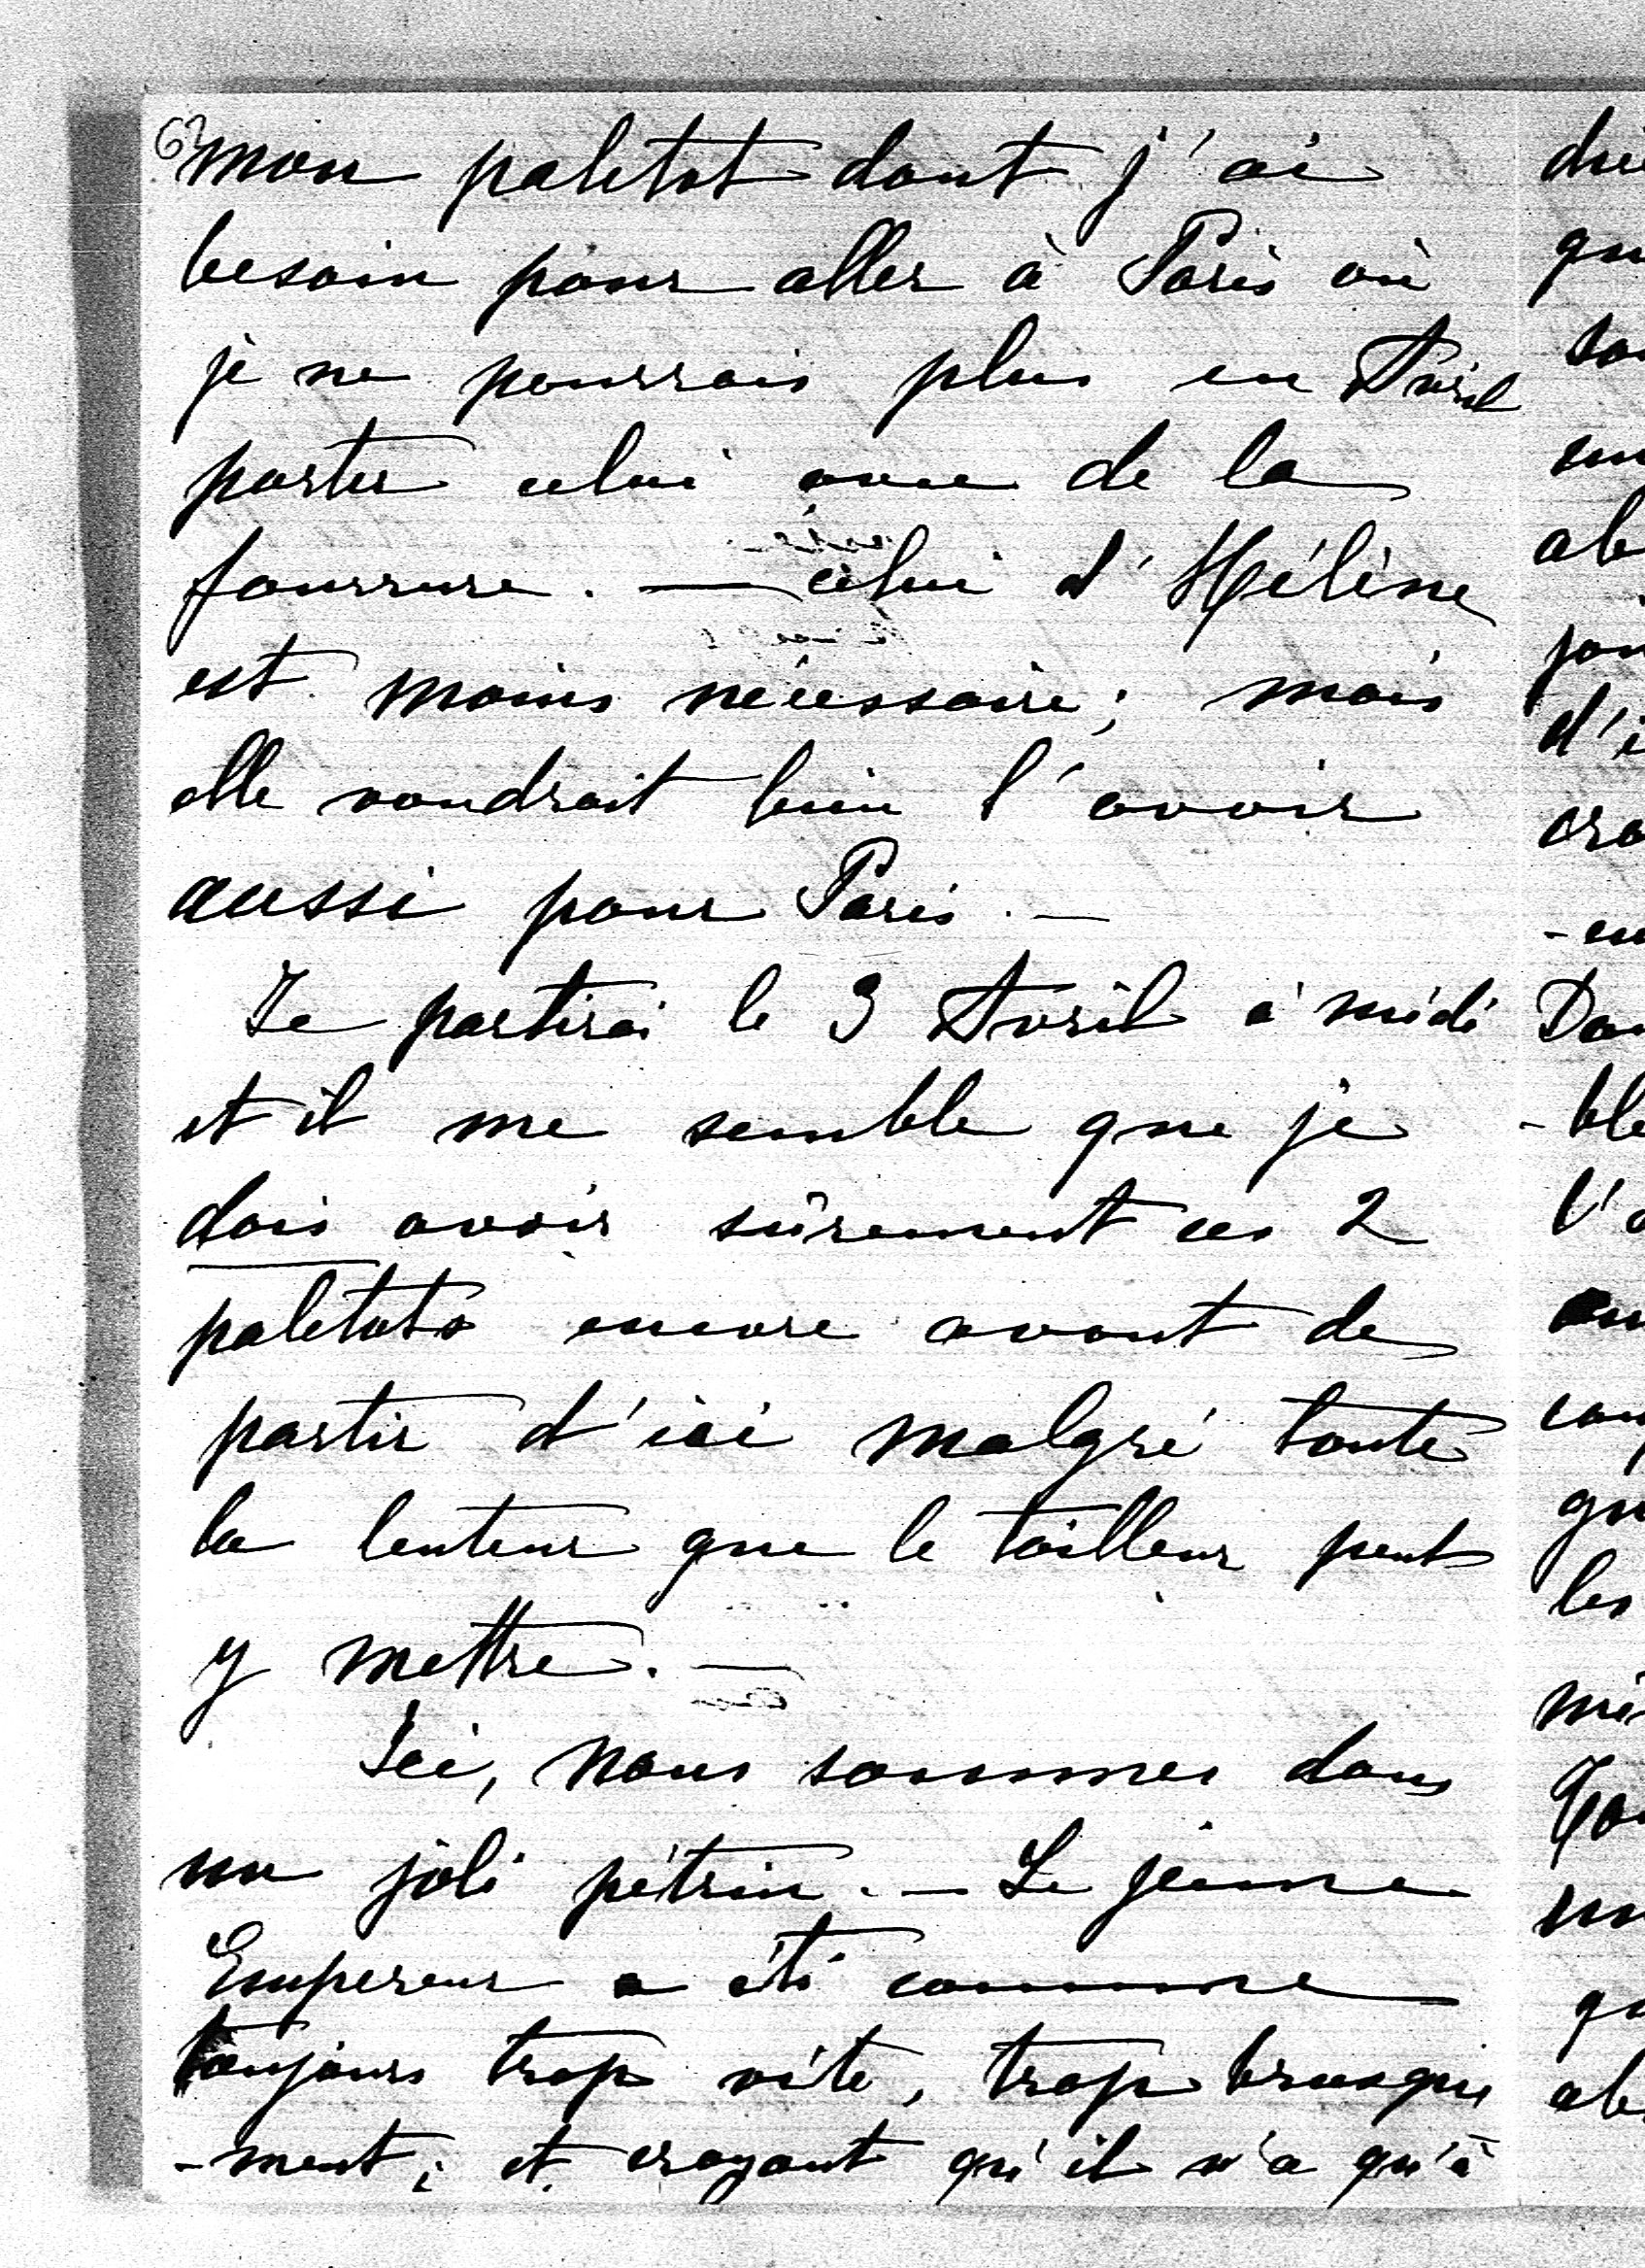 62
mon paletot dont j'ai
besoin pour aller à Paris où
je ne pourrais plus en Avril
porter celui avec de la
fourrure. — celui d'Hélène
est moins nécessaire; mais
elle voudrait bien l'avoir
aussi pour Paris. —
Je partirai le 3 Avril à midi
et il me semble que je
dois avoir sûrement ces 2
paletots encore avant de
partir d'ici malgré toute
la lenteur que le tailleur peut
y mettre. —
Ici, nous sommes dans
un joli pétrin. — Le jeune
Empereur a été comme
toujours trop vite, trop brusque
-ment; et croyant qu'il n'a qu'à